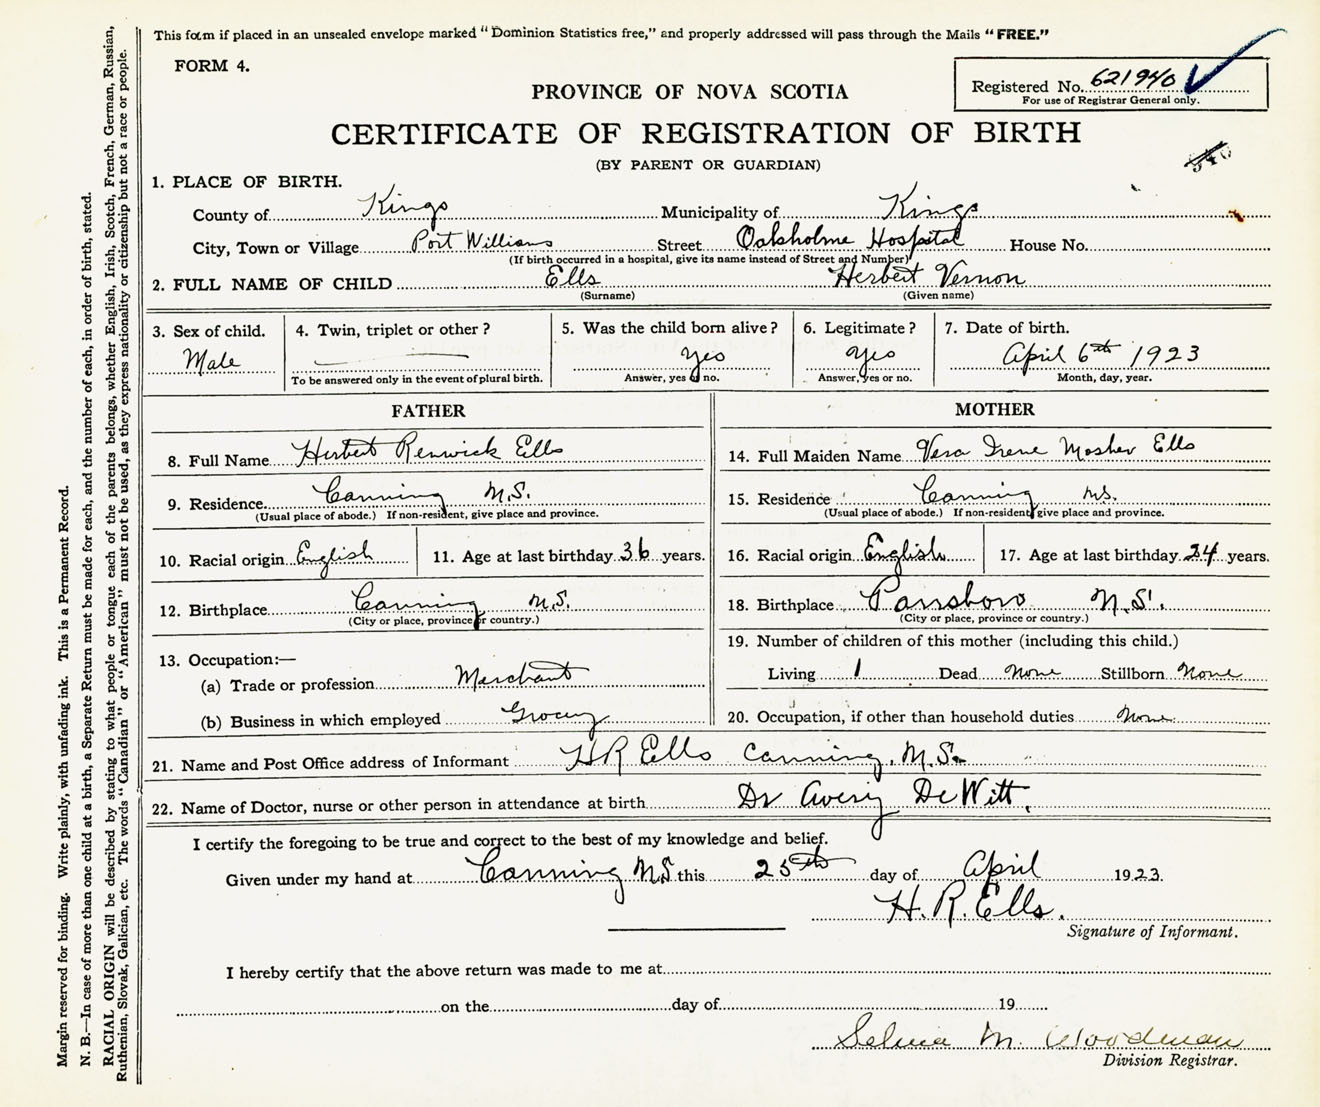 This form if placed in an unsealed envelope marked "Dominion Statistics free," and properly addressed will pass through the Mails "FREE."
FORM 4.
Registered No. 621940
For use of Registrar General only.
PROVINCE OF NOVA SCOTIA
CERTIFICATE OF REGISTRATION OF BIRTH
(BY PARENT OR GUARDIAN)
1. PLACE OF BIRTH.
County of Kings Municipality of Kings
City, Town or Village Port Williams Street Oaksholme Hospital House No.
(If birth occurred in a hospital, give its name instead of Street and Number)
2. FULL NAME OF CHILD Ells Herbert Vernon
(Surname) (Given name)
3. Sex of child. 4. Twin, triplet or other? 5. Was the child born alive? 6. Legitimate? 7. Date of birth.
Male Yes Yes April 6th 1923
To be answered only in the event of plural birth. Answer, yes or no. Answer, yes or no. Month, day, year.
FATHER
8. Full Name Herbert Renwick Ells
9. Residence Canning N.S.
(Usual place of abode.) If non-resident, give place and province.
10. Racial origin English 11. Age at last birthday 36 years.
12. Birthplace Canning N.S.
(City or place, province or country.)
13. Occupation:—
(a) Trade or profession Merchant
(b) Business in which employed Grocery
MOTHER
14. Full Maiden Name Vera Irene Mosher Ells
15. Residence Canning N.S.
(Usual place of abode.) If non-resident, give place and province.
16. Racial origin English 17. Age at last birthday 24 years.
18. Birthplace Parrsboro N.S.
(City or place, province or country.)
19. Number of children of this mother (including this child.)
Living 1 Dead None Stillborn None
20. Occupation, if other than household duties None
21. Name and Post Office address of Informant H R Ells Canning, N.S.
22. Name of Doctor, nurse or other person in attendance at birth Dr Avery DeWitt.
I certify the foregoing to be true and correct to the best of my knowledge and belief.
Given under my hand at Canning N.S. this 25th day of April 1923.
H. R. Ells.
Signature of Informant.
I hereby certify that the above return was made to me at
on the day of 19
Selina M. Woodman
Division Registrar.
Margin reserved for binding. Write plainly, with unfading ink. This is a Permanent Record.
N. B.—In case of more than one child at a birth, a Separate Return must be made for each, and the number of each, in order of birth, stated.
RACIAL ORIGIN will be described by stating to what people or tongue each of the parents belongs, whether English, Irish, Scotch, French, German, Russian,
Ruthenian, Slovak, Galician, etc. The words "Canadian" or "American" must not be used, as they express nationality or citizenship but not a race or people.